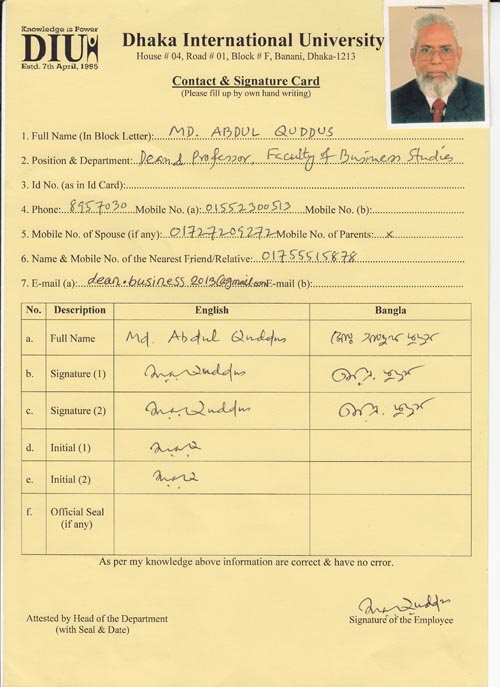 Knowledge is Power
DIU
Estd. 7th April, 1995
Dhaka International University
House # 04, Road # 01, Block # F, Banani, Dhaka-1213
Contact & Signature Card
(Please fill up by own hand writing)
1. Full Name (In Block Letter): MD. ABDUL QUDDUS
2. Position & Department: Dean & Professor, Faculty of Business Studies
3. Id No. (as in Id Card):
4. Phone: 8957030 Mobile No. (a): 01552300513 Mobile No. (b):
5. Mobile No. of Spouse (if any): 01727209272 Mobile No. of Parents: x
6. Name & Mobile No. of the Nearest Friend/Relative: 01755515878
7. E-mail (a): dean.business2013@gmail.com E-mail (b):
No. Description English Bangla
a. Full Name Md. Abdul Quddus মোঃ আব্দুল কুদ্দুস
b. Signature (1) Quddus
c. Signature (2) Quddus
d. Initial (1)
e. Initial (2)
f. Official Seal
(if any)
As per my knowledge above information are correct & have no error.
Quddus
Attested by Head of the Department Signature of the Employee
(with Seal & Date)